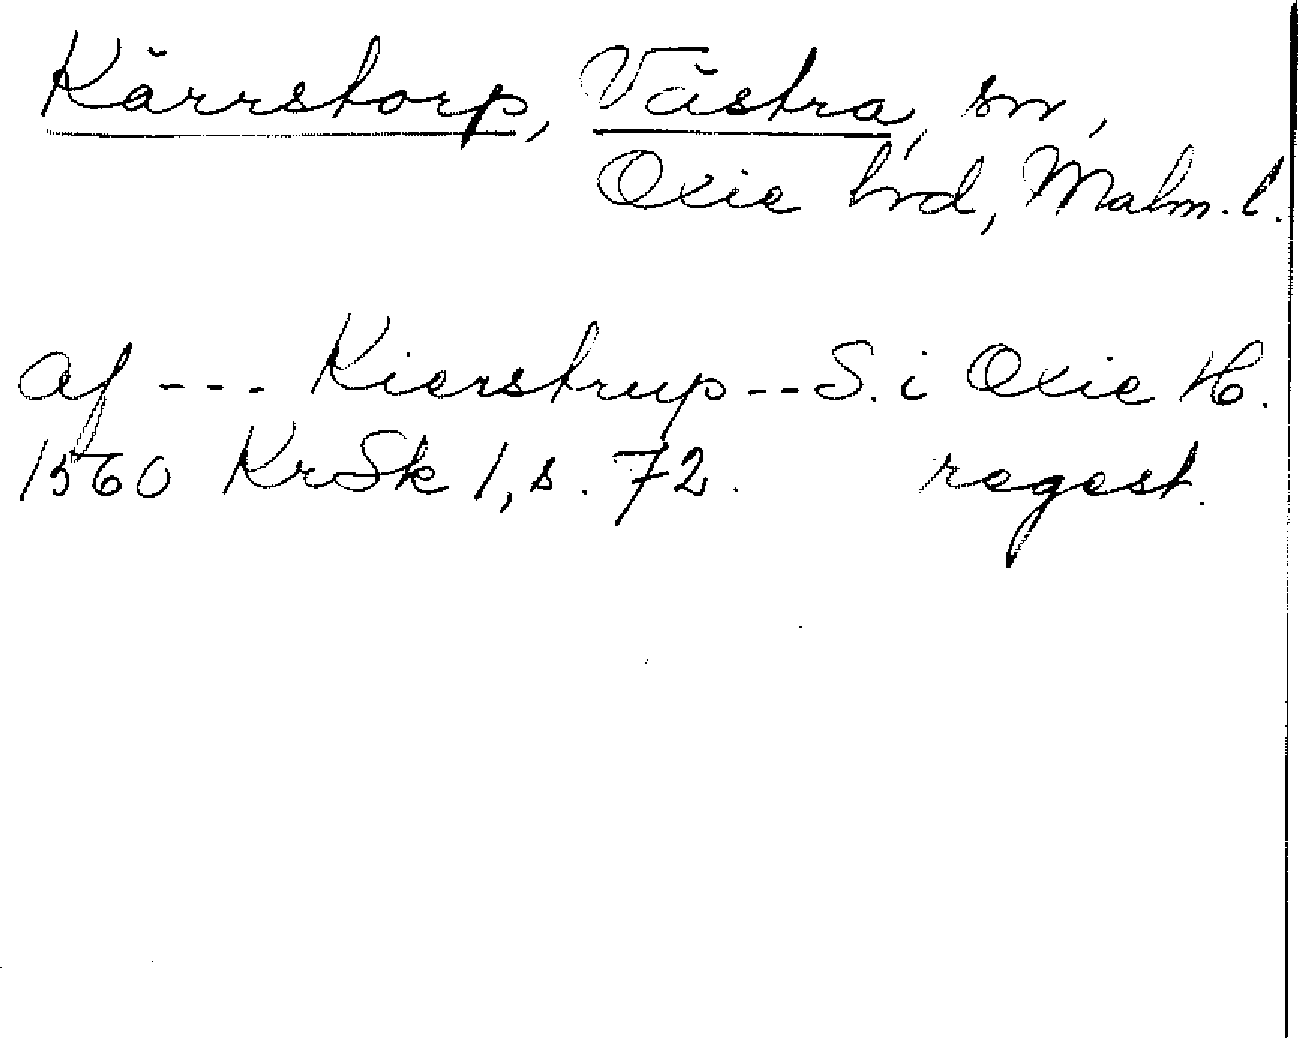 Kärrstorp, Västra, sn,
Oxie hrd, Malm. l.
af --- Kierstrup -- S. i Oxie H.
1560 KrSk 1, s. 72. regest.